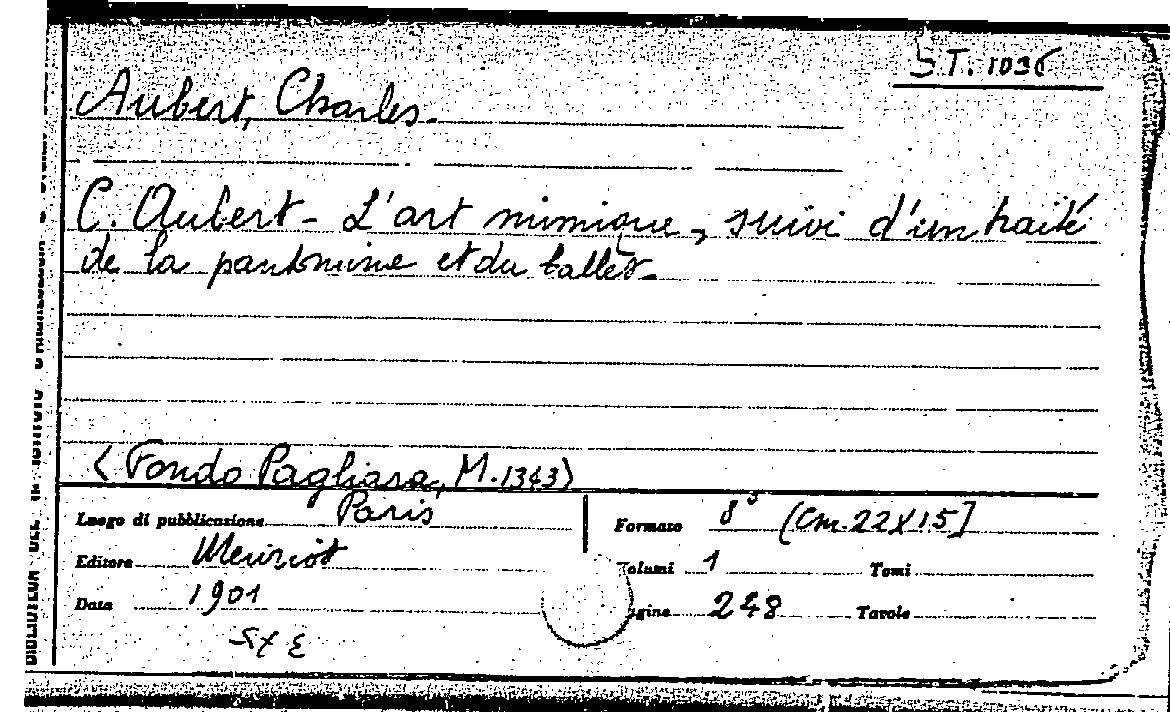 S.T. 1036
Aubert, Charles.
C. Aubert - L'art mimique, suivi d'un traité
de la pantomime et du ballet.
(Fondo Pagliara, M. 1343)
Luogo di pubblicazione Paris
Formato 8° (cm. 22x15]
Editore Meuriot
Volumi 1 Tomi
Data 1901
Pagine 248 Tavole